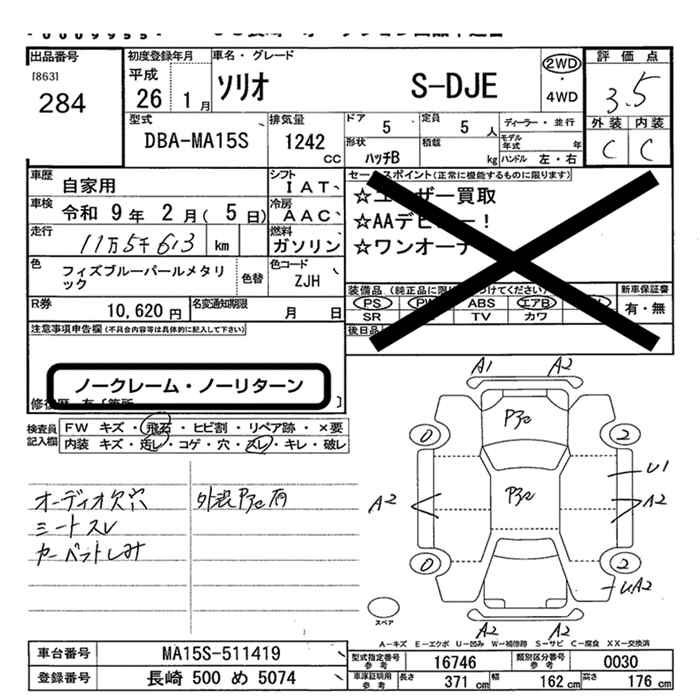 出品番号
[863]
284
初度登録年月
平成
26 1 月
車名・グレード
ソリオ S-DJE
2WD
4WD
評価点
3.5
外装 内装
C C
型式
DBA-MA15S
排気量
1242
CC
ドア
5
定員
5 人
形状
ハッチB
積載
kg
ディーラー・並行
モデル年式 年
ハンドル 左・右
車歴
自家用
シフト
IAT
車検
令和 9 年 2 月 ( 5 日)
冷房
AAC
走行
11万5千613 km
燃料
ガソリン
色
フィズブルーパールメタリック
色替
色コード
ZJH
R券
10,620 円
名変通知期限
月 日
セールスポイント(正常に機能するものに限ります)
☆ユーザー買取
☆AAデビュー!
☆ワンオーナー
装備品
新車保証書
PS ABS エアB
SR TV カワ
有・無
後日品
注意事項申告欄(不具合内容等は具体的に記入して下さい)
ノークレーム・ノーリターン
検査員記入欄
FW キズ・飛石・ヒビ割・リペア跡・×要
内装 キズ・汚レ・コゲ・穴・スレ・キレ・破レ
オーディオ欠穴
シートスレ
カーペットしみ
外装Pｼﾐ有
A1 A2
0 2
U1
A2 A2
0 2
UA2
A2 A2
スペア
A-キズ E-エクボ U-凹み W-補修跡 S-サビ C-腐食 XX-交換済
車台番号
MA15S-511419
登録番号
長崎 500 め 5074
型式指定番号
参考
16746
類別区分番号
参考
0030
車庫証明用
参考
長さ 371 cm 幅 162 cm 高さ 176 cm